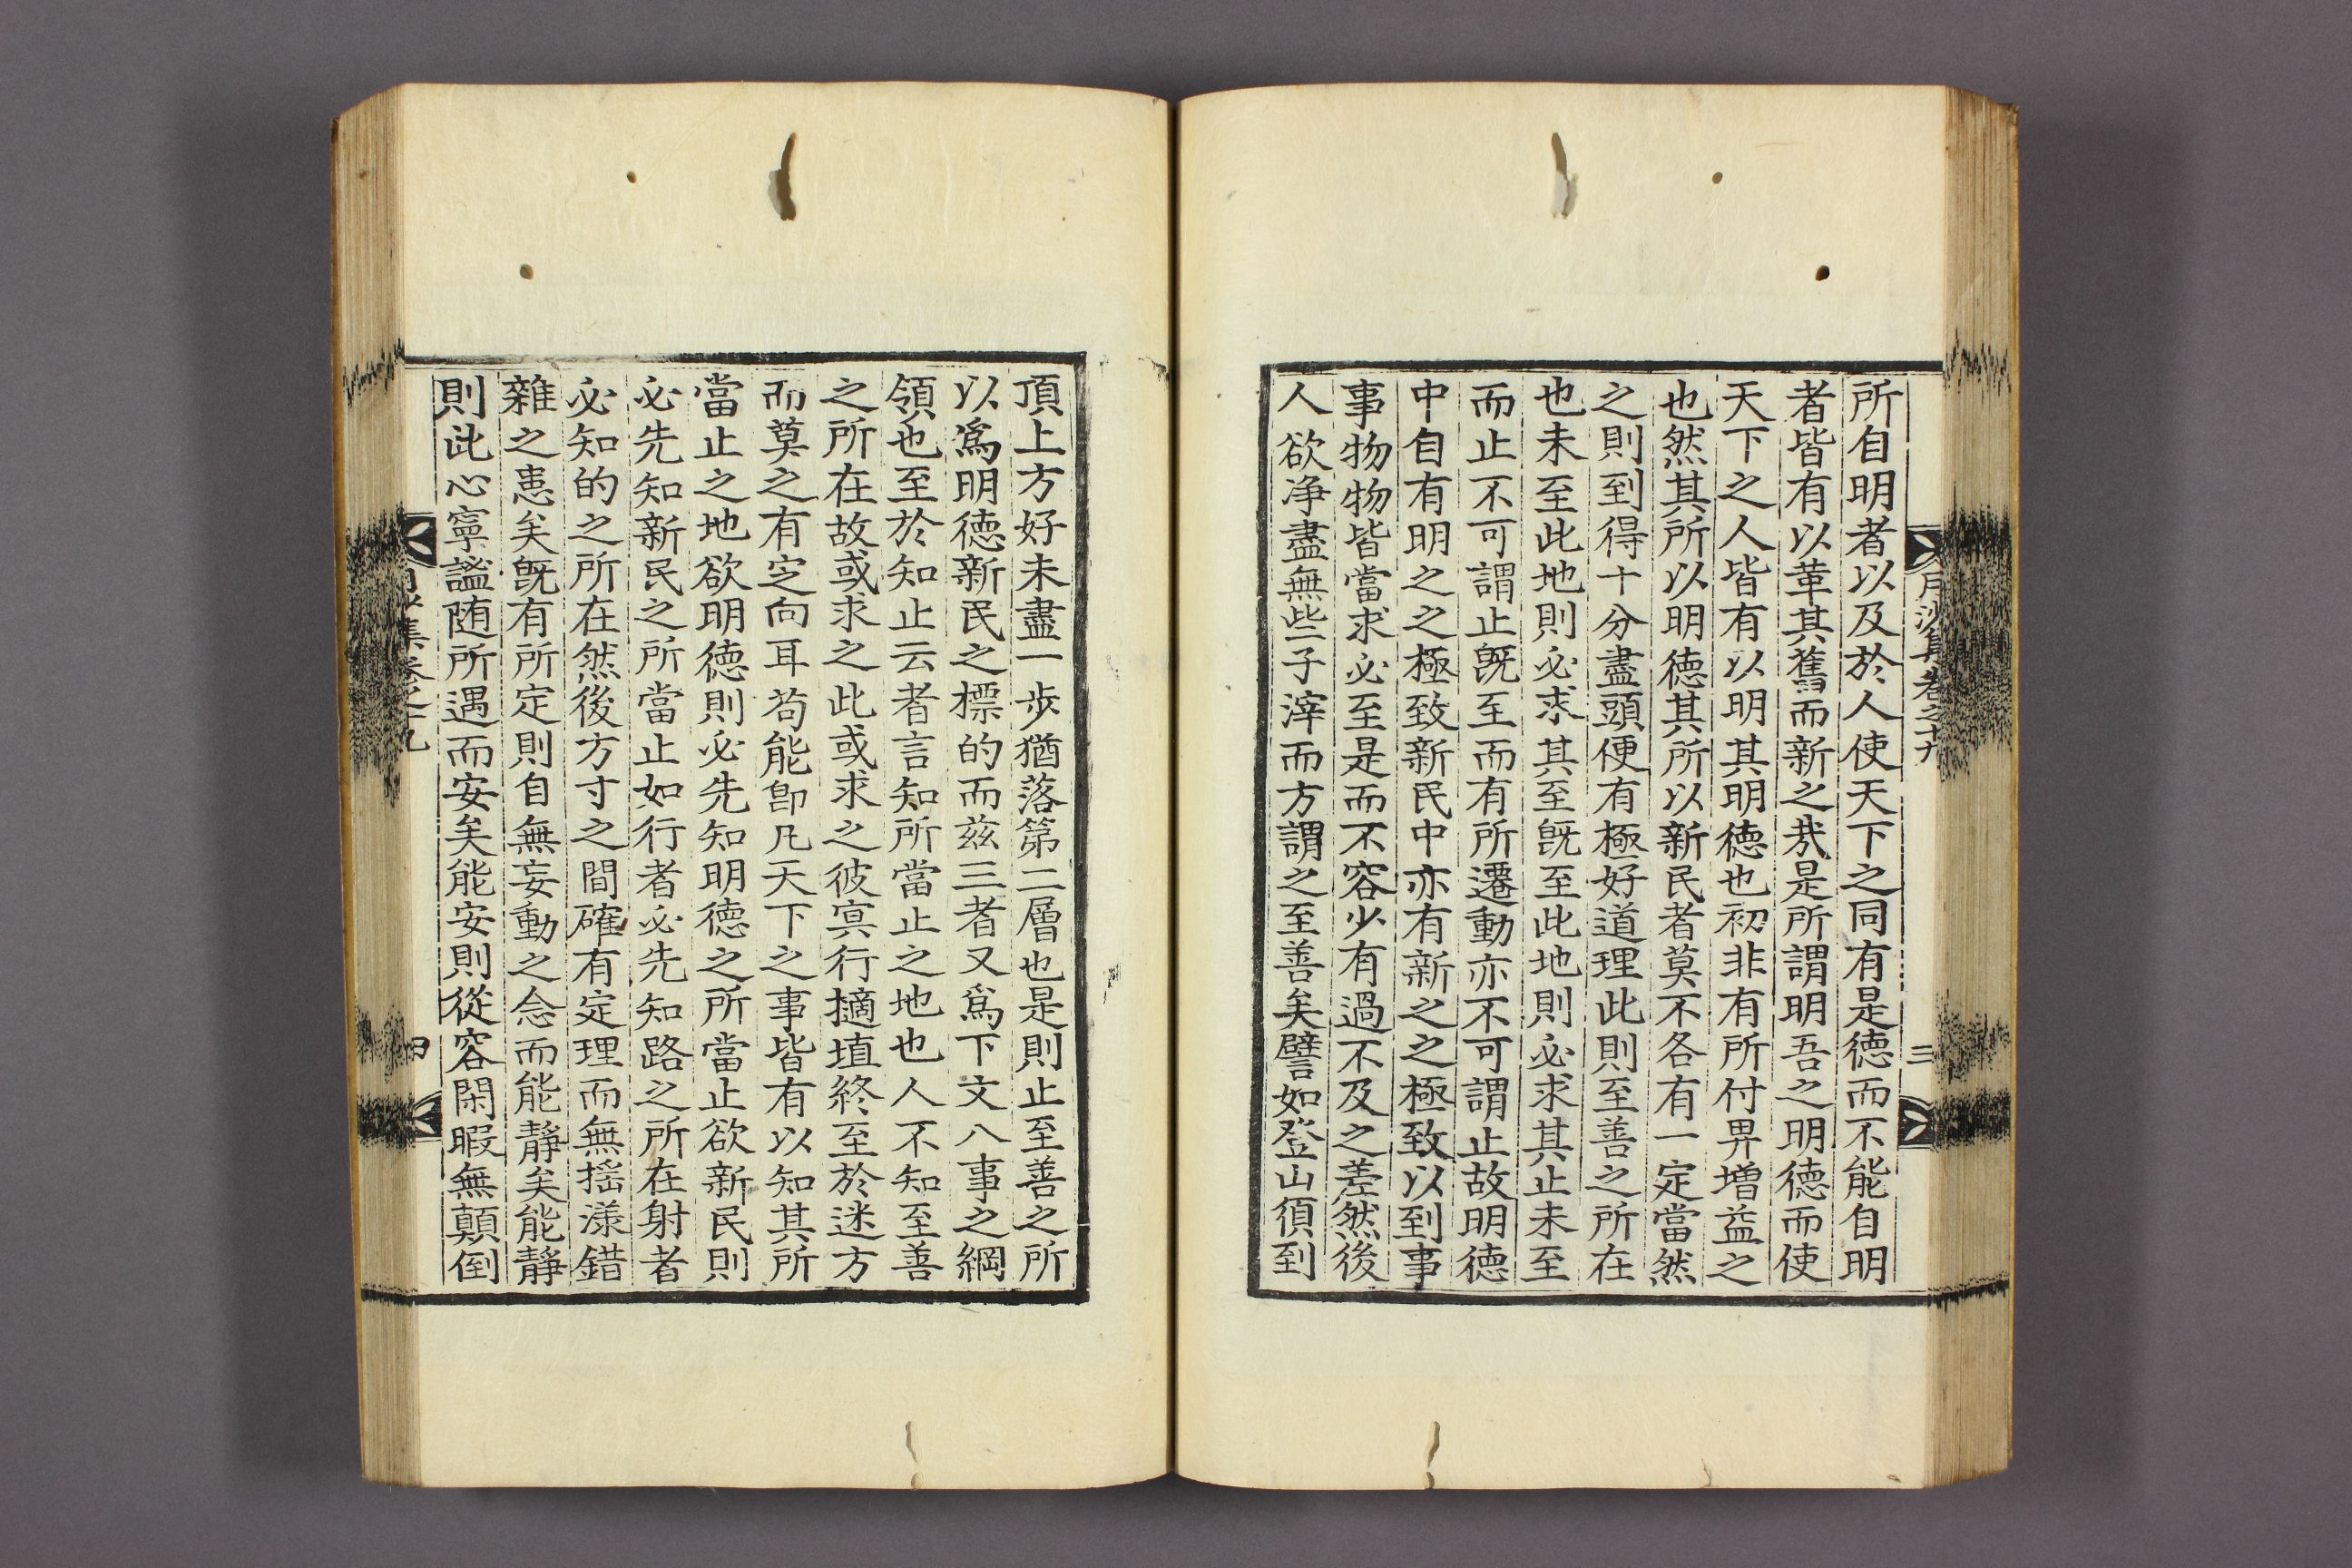 月沙集卷之十九
三
所自明者以及於人使天下之同有是德而不能自明
者皆有以革其舊而新之㢤是所謂明吾之明德而使
天下之人皆有以明其明德也初非有所付畀增益之
也然其所以明德其所以新民者莫不各有一定當然
之則到得十分盡頭便有極好道理此則至善之所在
也未至此地則必求其至旣至此地則必求其止未至
而止不可謂止旣至而有所遷動亦不可謂止故明德
中自有明之之極致新民中亦有新之之極致以到事
事物物皆當求必至是而不容少有過不及之差然後
人欲净盡無些子滓而方謂之至善矣譬如登山須到
頂上方好未盡一步猶落第二層也是則止至善之所
以爲明德新民之標的而兹三者又爲下文八事之綱
領也至於知止云者言知所當止之地也人不知至善
之所在故或求之此或求之彼冥行擿埴終至於迷方
而莫之有定向耳苟能卽凡天下之事皆有以知其所
當止之地欲明德則必先知明德之所當止欲新民則
必先知新民之所當止如行者必先知路之所在射者
必知的之所在然後方寸之間確有定理而無搖漾錯
雜之患矣旣有所定則自無妄動之念而能靜矣能靜
則此心寧謐随所遇而安矣能安則從容閑暇無顛倒
月沙集卷之十九
四